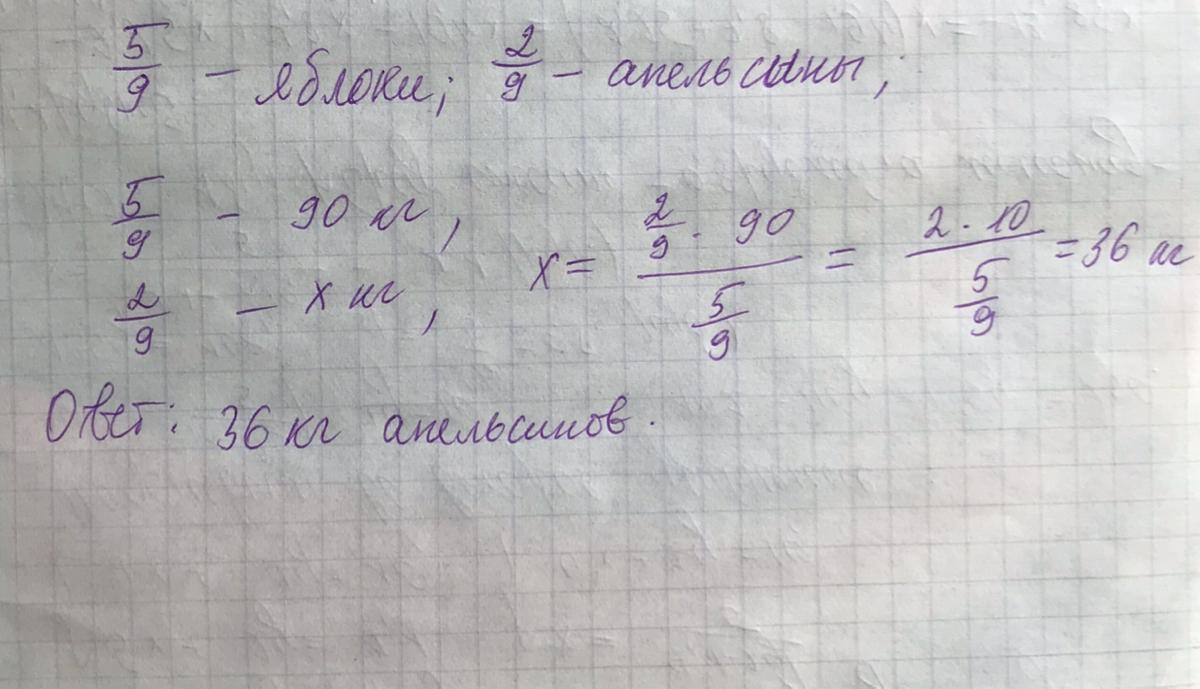 5/9 - яблоки; 2/9 - апельсыны;
5/9 - 90 кг,
2/9 - х кг,
х = (2/9 · 90)/(5/9) = (2 · 10)/(5/9) = 36 кг
Ответ: 36 кг апельсинов.